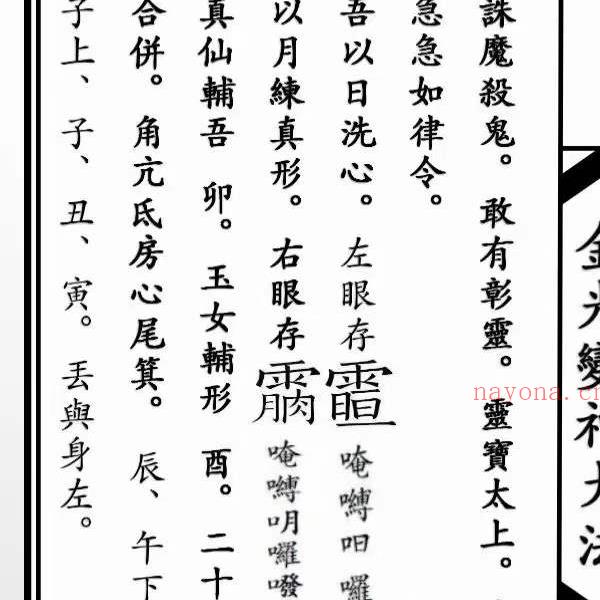 金光變神大法
誅魔殺鬼。敢有彰靈。靈寶太上。
急急如律令。
吾以日洗心。左眼存 唵嚩 囉
以月練真形。右眼存 唵嚩 囉
真仙輔吾 卯。玉女輔形 酉。二十
合併。角亢氐房心尾箕。 辰、午下
子上、子、丑、寅。丟與身左。
nayona.c